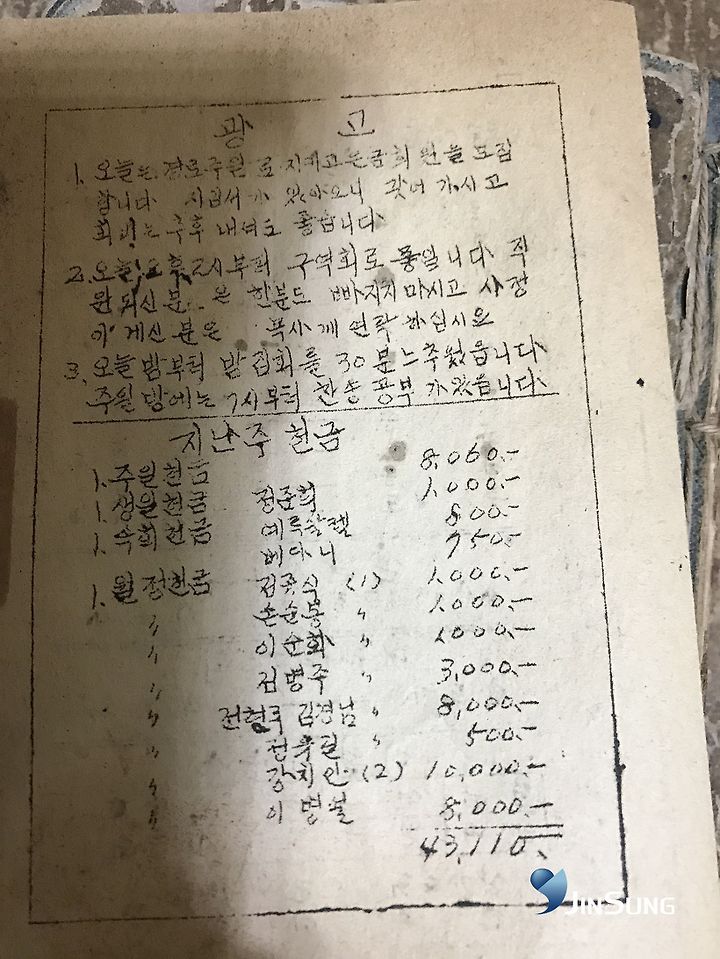 광 고
1. 오늘은 경로주일로 지키고 은급회원을 모집
합니다 있아오니 갖어 가시고
회비는 추후 내셔도 좋습니다
2. 오늘 오후 2시부터 구역회로 뫃입니다 직
원되신분은 한분도 빠지지마시고 사정
이 계신분은 목사께 연락하십시요
3. 오늘밤부터 밤집회를 30분 느추웠읍니다
주일밤에는 7시부터 찬송공부가 있읍니다
지난주 헌금
1. 주일헌금 8,060.-
1. 생일헌금 정준희 1,000.-
1. 속회헌금 예루살렘 800.-
베다니 750.-
1. 월정헌금 김종식 (1) 1,000.-
〃 손순봉 〃 1,000.-
〃 이순화 〃 1000.-
〃 김병주 〃 3,000.-
〃 전형주 김경남 〃 8,000.-
〃 〃 500.-
〃 강치안 (2) 10,000.-
〃 이병불 8,000.-
43,110.-
JINSUNG